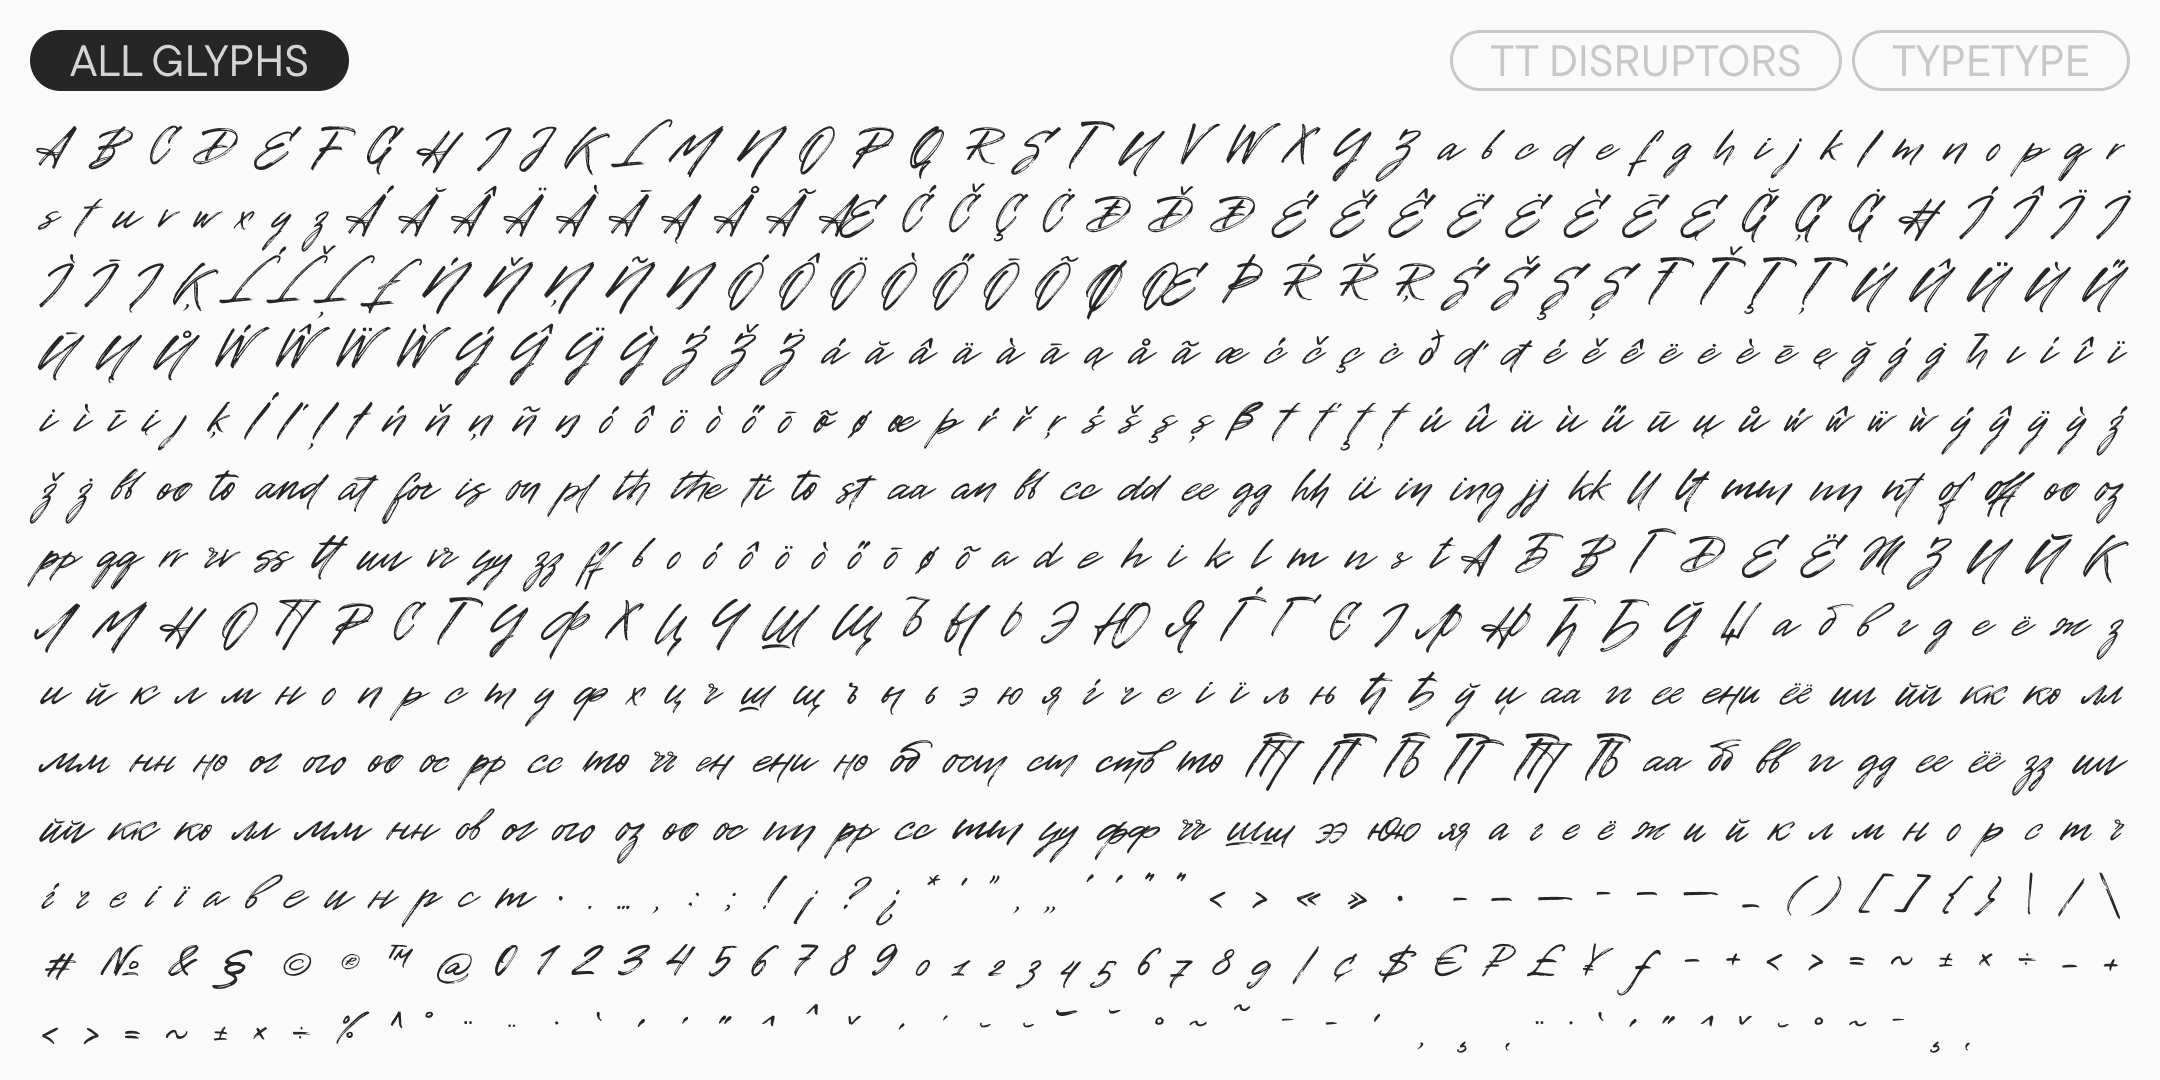 ALL GLYPHS TT DISRUPTORS TYPETYPE
A B C D E F G H I J K L M N O P Q R S T U V W X Y Z a b c d e f g h i j k l m n o p q r
s t u v w x y z Á Ă Â Ä À Ā Ą Å Ã Æ Ć Č Ç Ċ Đ Ď Đ É Ě Ê Ë Ė È Ē Ę Ğ Ģ Ġ Ħ Í Î Ï İ
Ì Ī Į Ķ Ĺ Ľ Ļ Ł Ń Ň Ņ Ñ Ŋ Ó Ô Ö Ò Ő Ō Õ Ø Œ Þ Ŕ Ř Ŗ Ś Š Ş Ș Ŧ Ť Ţ Ț Ú Û Ü Ù Ű
Ū Ų Ů Ẃ Ŵ Ẅ Ẁ Ý Ŷ Ÿ Ỳ Ź Ž Ż á ă â ä à ā ą å ã æ ć č ç ċ ð ď đ é ě ê ë ė è ē ę ğ ģ ġ ħ ı í î ï
i ì ī į ȷ ķ ĺ ľ ļ ł ń ň ņ ñ ŋ ó ô ö ò ő ō õ ø œ þ ŕ ř ŗ ś š ş ș ß ŧ ť ţ ț ú û ü ù ű ū ų ů ẃ ŵ ẅ ẁ ý ŷ ÿ ỳ ź
ž ż bb oo to and at for is on pl th the ti to st aa an bb cc dd ee gg hh ii in ing jj kk ll lt mm nn nt of off oo oz
pp qq rr rv ss tt uu vr yy zz ff b o ó ô ö ò ő ō ø õ a d e h i k l m n s t А Б В Г Д Е Ё Ж З И Й К
Л М Н О П Р С Т У Ф Х Ц Ч Ш Щ Ъ Ы Ь Э Ю Я Ѓ Ґ Є І Љ Њ Ћ Ђ Ў Џ а б в г д е ё ж з
и й к л м н о п р с т у ф х ц ч ш щ ъ ы ь э ю я ѓ г є і ї љ њ ћ ђ ў џ аа гг ее ени ёё ии йй кк ко лл
мм нн но ог ого оо ос рр сс то чч ен ени но бб ост ст ств то аа бб вв гг дд ее ёё зз ии
йй кк ко лл мм нн ов ог ого оз оо ос пп рр сс тт уу фф чч шш ээ юю яя а г е ё ж и й к л м н о р с т ч
ѓ г є і ї а в е и н р с т · . … , : ; ! ¡ ? ¿ * ‘ ” ‚ „ ' ' " " ‹ › « » • - – — - – — _ ( ) [ ] { } | / \
# № & § © ® ™ @ 0 1 2 3 4 5 6 7 8 9 0 1 2 3 4 5 6 7 8 9 / ¢ $ € ₽ £ ¥ ƒ − + < > = ~ ± × ÷ − +
< > = ~ ± × ÷ % ^ °